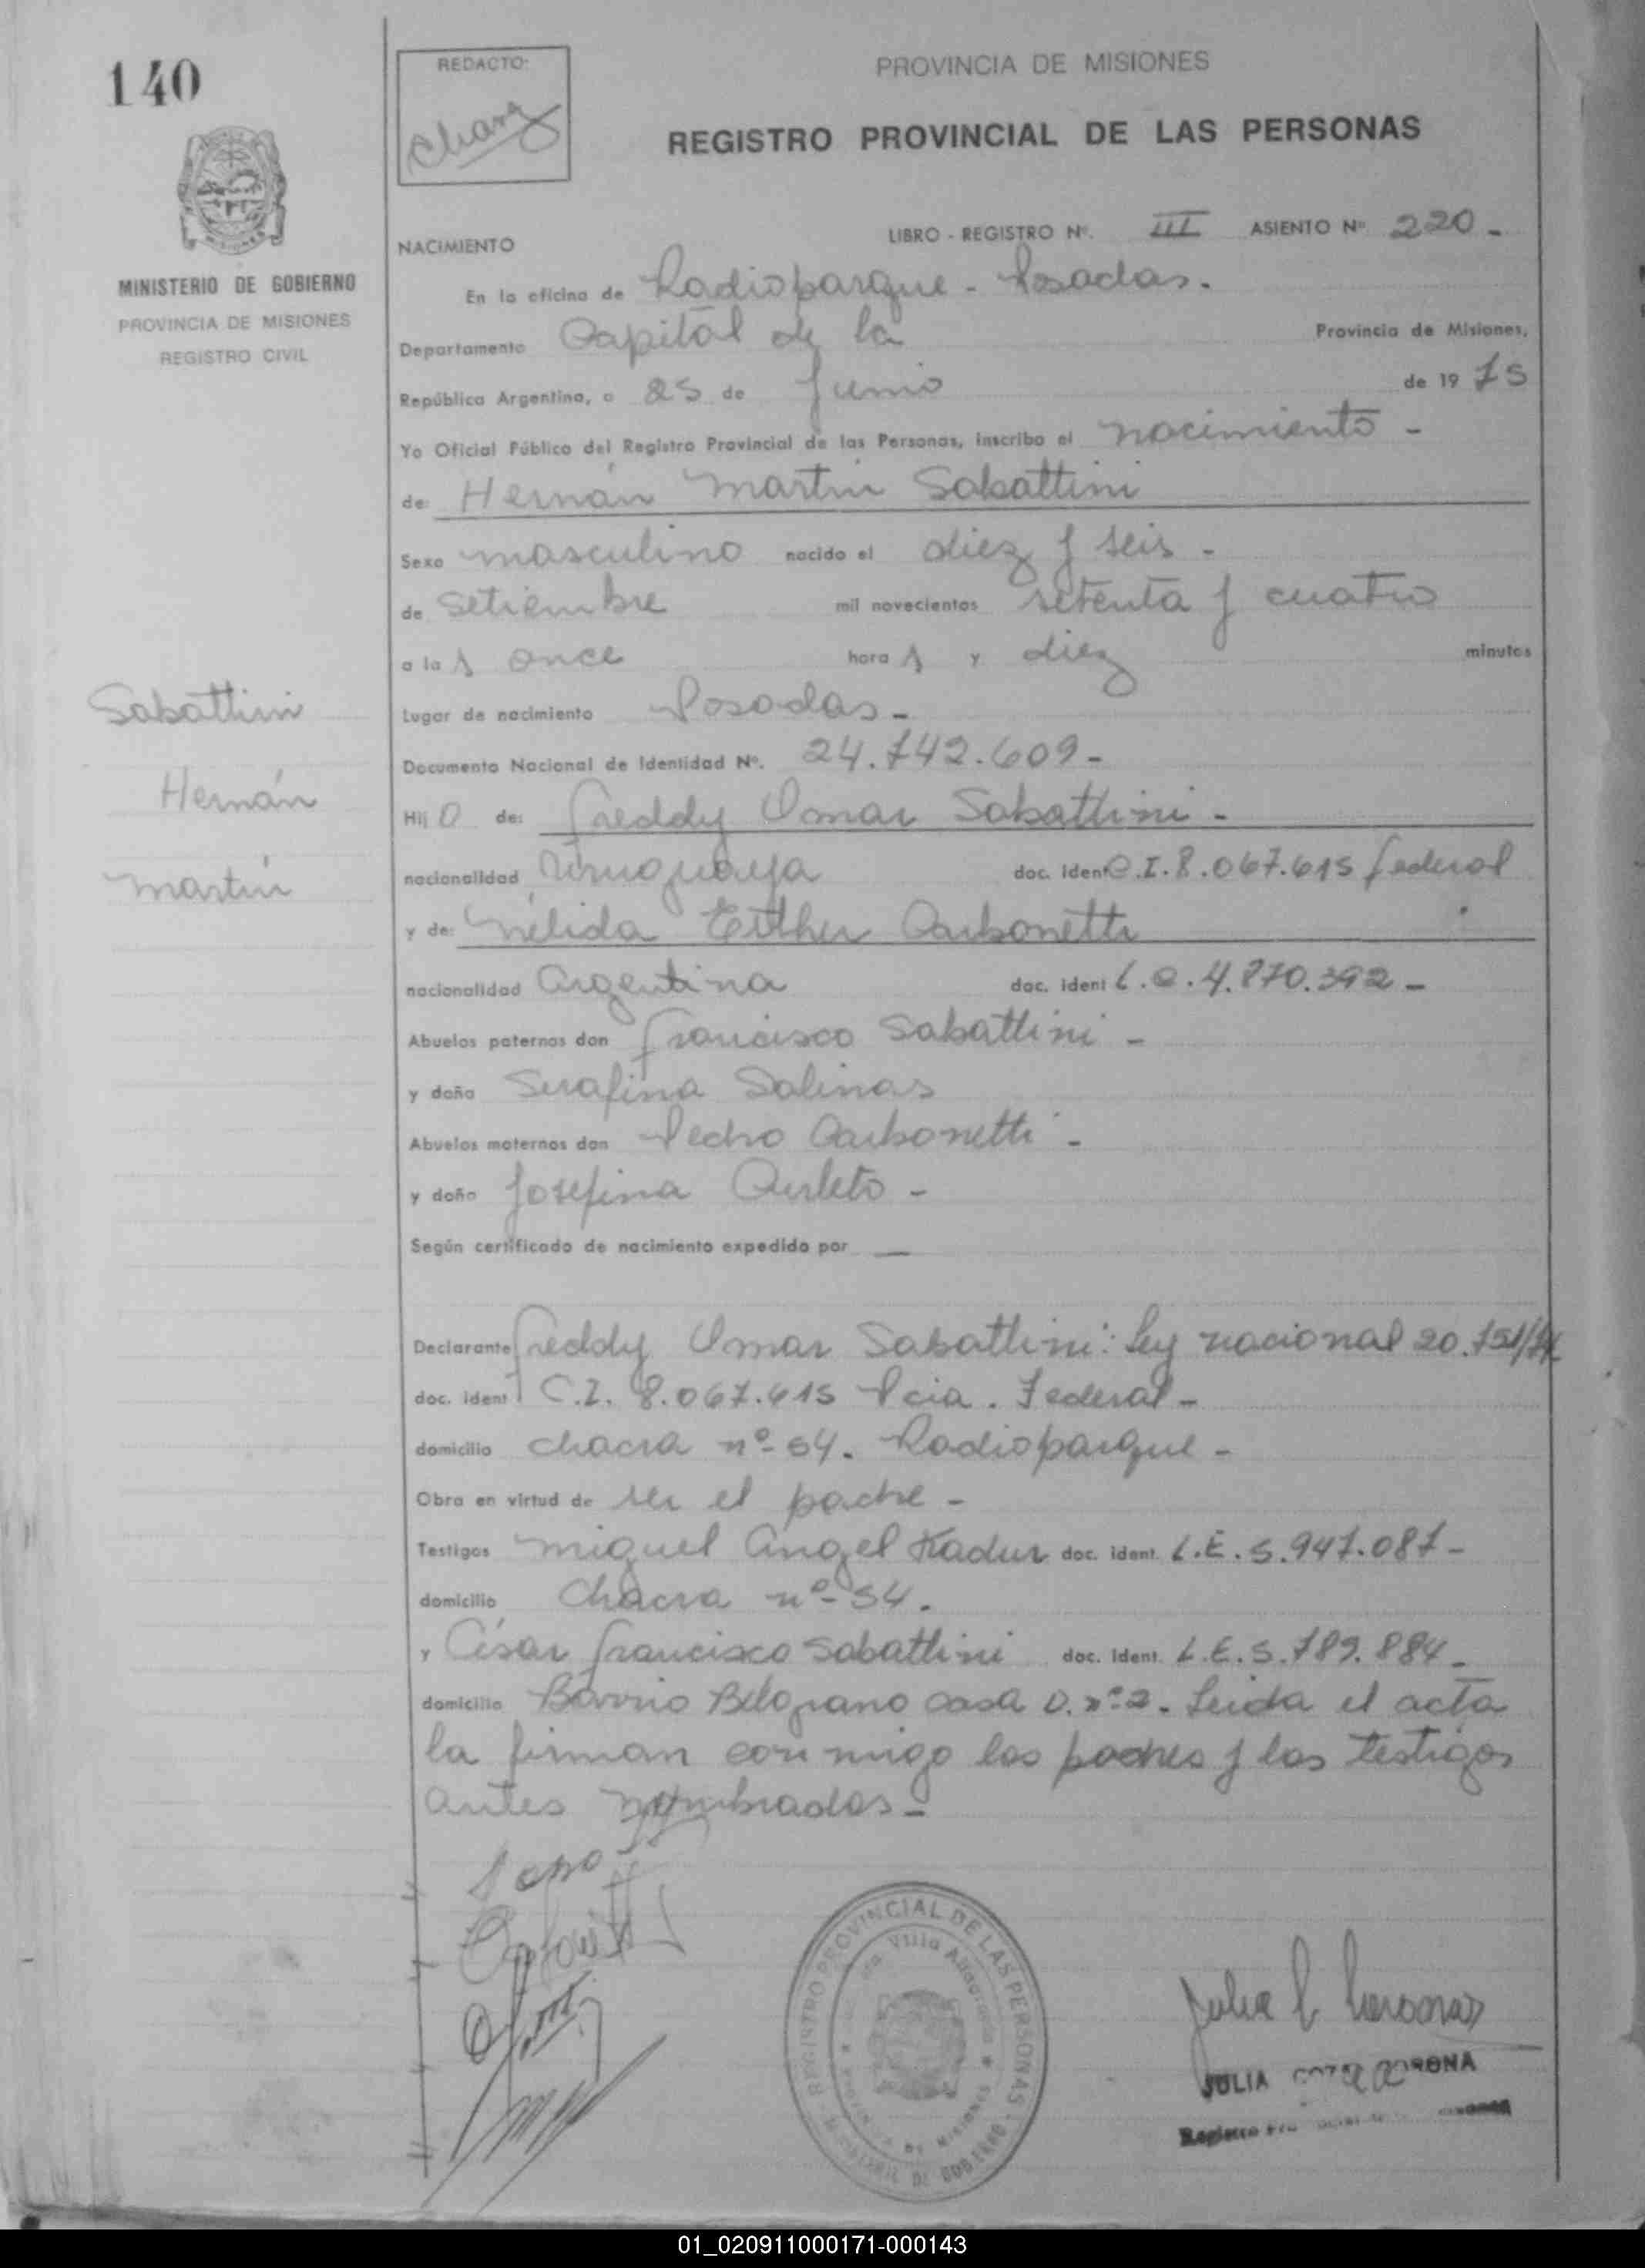 140
REDACTO:
PROVINCIA DE MISIONES
REGISTRO PROVINCIAL DE LAS PERSONAS
MINISTERIO DE GOBIERNO
PROVINCIA DE MISIONES
REGISTRO CIVIL
NACIMIENTO
LIBRO - REGISTRO Nº. III ASIENTO Nº 220 -
En la oficina de Radioparque - Posadas.
Departamento Capital de la Provincia de Misiones,
República Argentina, a 25 de Junio de 19 75
Yo Oficial Público del Registro Provincial de las Personas, inscribo el nacimiento -
de: Hernán Martín Sabattini
Sexo masculino nacido el diez y seis -
de setiembre mil novecientos setenta y cuatro
a la s once hora s y diez minutos
Lugar de nacimiento Posadas -
Documento Nacional de Identidad Nº. 24.742.609 -
Sabattini
Hernán
Martín
Hij o de: Freddy Omar Sabattini -
nacionalidad Uruguaya doc. ident C.I. 8.067.615 Federal
y de: Nélida Esther Carbonetti
nacionalidad argentina doc. ident L.C. 4.870.392 -
Abuelos paternos don Francisco Sabattini -
y doña Serafina Salinas
Abuelos maternos don Pedro Carbonetti -
y doña Josefina
Según certificado de nacimiento expedido por —
Declarante Freddy Omar Sabattini: Ley nacional 20.751/74
doc. ident C.I. 8.067.615 Pcia. Federal -
domicilio chacra nº 54. Radioparque -
Obra en virtud de ser el padre -
Testigos Miguel Angel Kadur doc. ident. L.E. 5.947.087 -
domicilio Chacra nº 54.
y César Francisco Sabattini doc. ident. L.E. 5.789.884 -
domicilio Barrio Belgrano casa D. nº 2. Leida el acta
la firman conmigo los padres y los testigos
antes nombrados -
REGISTRO PROVINCIAL DE LAS PERSONAS
Villa
DE MISIONES
JULIA
Registro
01_020911000171-000143